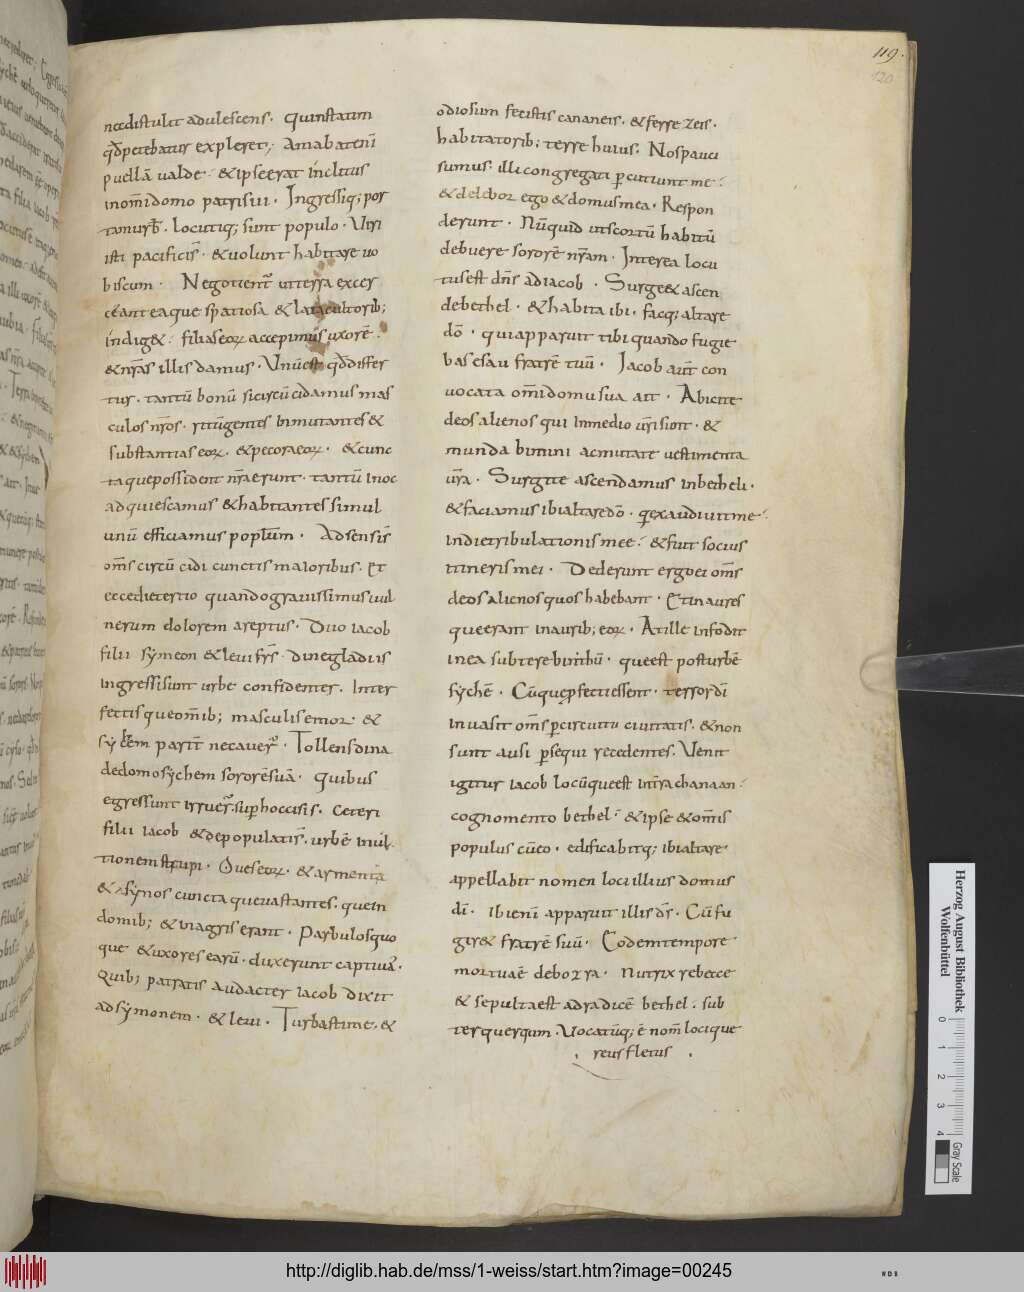 119.
120
necdistulit adulescens. quinstatim
qd̄petebatur expleret; Amabatenī
puellā ualde. & ipseerat inclitus
inom̄idomo patrisiui. Ingressiq; por
tamurƀ. locutiq; sunt populo. Uiri
isti pacificis̄. & uolunt habitare uo
biscum. Negotient᷑ interra exer
ceant eaque spatiosa & latacultorib;
indig&. filiaseoꝝ accepimus uxorē.
& nr̄as illis damus. Unūest qd̄differ
tur. tantū bonū sicircūcidamus mas
culos nr̄os. ritūgentes inmutantes &
substantias eoꝝ. & pecoraeoꝝ. & cunc
taquepossident nr̄aerunt. tantū inoc
adquiescamus & habitantes simul
unū efficiamus populum. Adsensis̄
om̄s circūcidi cunctis maioribus. Et
eccedietertio quandograuissimusuul
nerum dolorem areptus. Duo iacob
filii symeon & leui frs̄. dinegladiis
ingressisunt urbe confidenter. Inter
fectisqueom̄ib; masculisemor &
sychem parit̄ necauer̄. Tollensdina
dedomosychem sororēsuā. quibus
egressunt irruer̄. superhoccisis. ceteri
filii iacob & depopulatis̄. urbē inul
tionemstupri. Oueseoꝝ. & armenta
& asinos cuncta queuastantes. quein
domib; & inagris erant. Paruulosquo
que & uxores earū. duxerunt captiua᷑.
Quib; patratis audacter iacob dixit
adsymonem. & leui. Turbastime. &
odiosum fecistis cananeis. & ferezeis.
habitatorib; terre huius. Nospauci
sumus. illi congregati ꝑcutiunt me.
& delebor ego & domusmea. Respon
derunt. Nūquid utscortū habitū
debuere sororē nr̄am. Interea locu
tusest dn̄s adiacob. Surge & ascen
debethel. & habita ibi. facq; altare
dō. quiapparuit tibi quando fugie
bas esau fratrē tuū. Jacob aut̄ con
uocata om̄idomusua ait. Abicite
deos alienos qui inmedio ur̄i sunt. &
munda bimini acmutate uestimenta
ur̄a. Surgite ascendamus inbetheli.
& faciamus ibialtaredō. q̄exaudiuitme.
indietribulationis mee. & fuit socius
itinerismei. Dederunt ergoei om̄s
deosalienosquos habebant. Etinaures
queerant inaurib; eoꝝ. Atille infodit
inea subterebinthū. queest posturbē
sychē. Cūqueꝓfectiessent. terrordī
inuasit om̄s ꝑcircuitu ciuitatis. & non
sunt ausi ꝑsequi recedentes. Uenit
igitur iacob locūqueest int̄ra chanaan.
cognomento bethel. & ipse & om̄is
populus cūeo. edificabitq; ibialtare.
appellabit nomen loci illius domus
dī. ibienī apparuit illis ds̄. Cū fu
gir& fratrē suū. Eodemtempore
mortuaē debozra. nutrix rebecce
& sepultaest adradicē bethel. sub
terquerqum. Uocatūq; ē nom̄ locique
reus fletus
Herzog August Bibliothek
Wolfenbüttel
0 1 2 3 4
Gray Scale
http://diglib.hab.de/mss/1-weiss/start.htm?image=00245